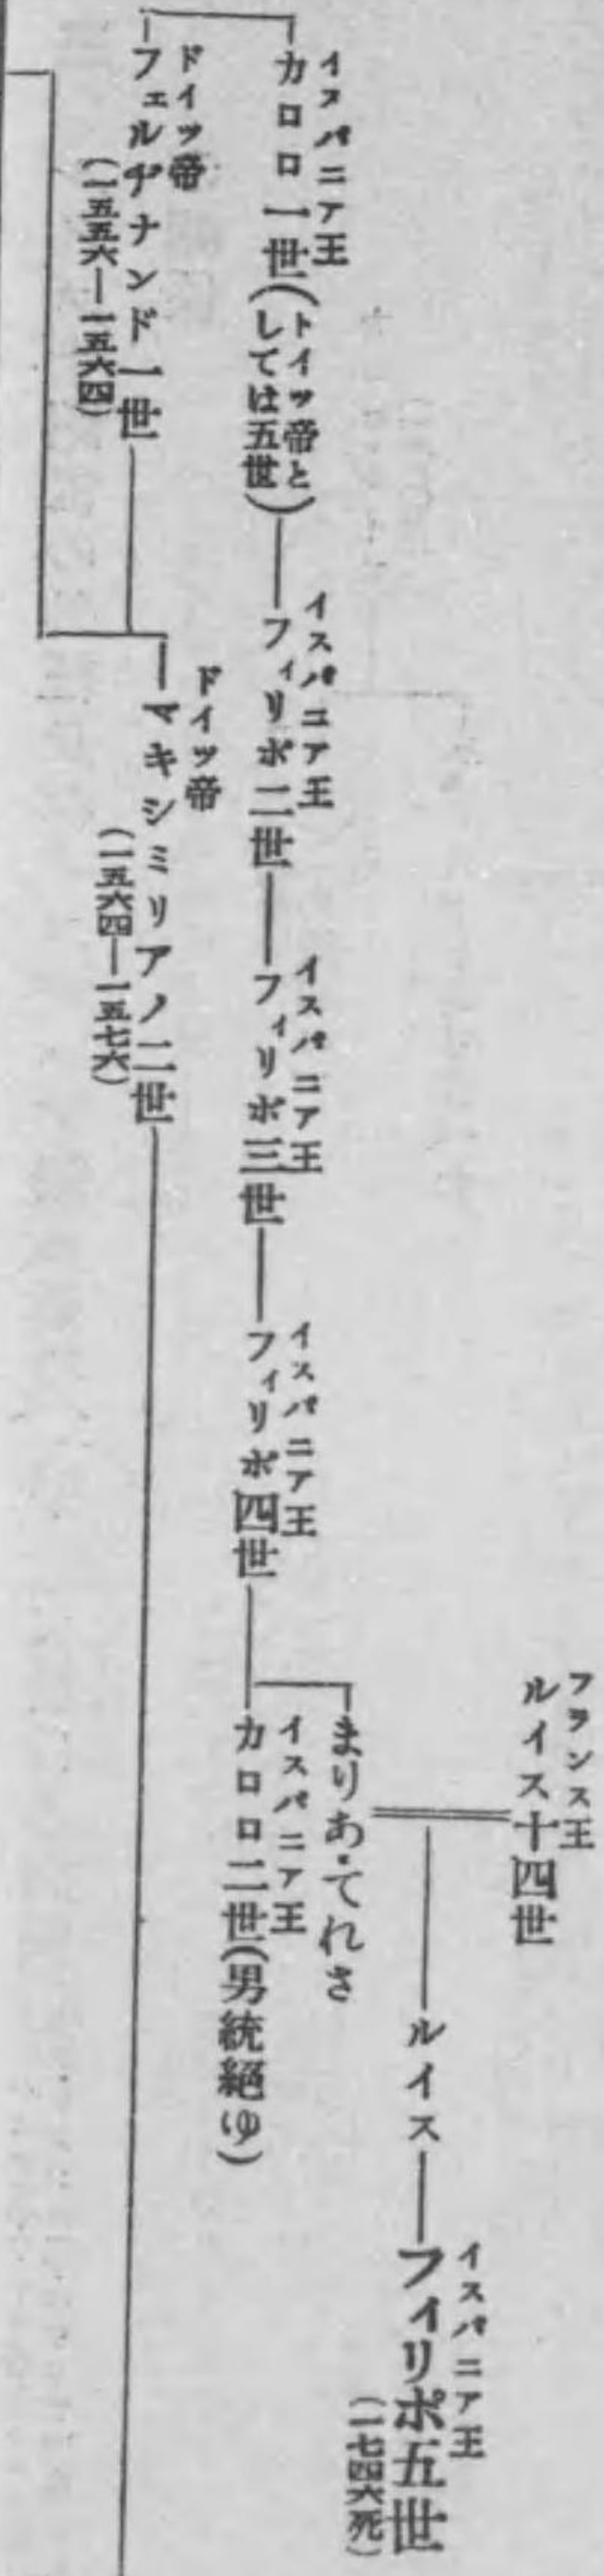 フランス王
ルイス十四世
イスパニア王
フィリポ五世
(一七四六死)
ルイス
まりあ・てれさ
イスパニア王
カロロ一世(トイッ帝としては五世)
イスパニア王
フィリポ二世
イスパニア王
フィリポ三世
イスパニア王
フィリポ四世
イスパニア王
カロロ二世(男統絕ゆ)
ドイッ帝
フェルヂナンド一世
(一五五六—一五六四)
ドイッ帝
マキシミリアノ二世
(一五六四—一五七六)